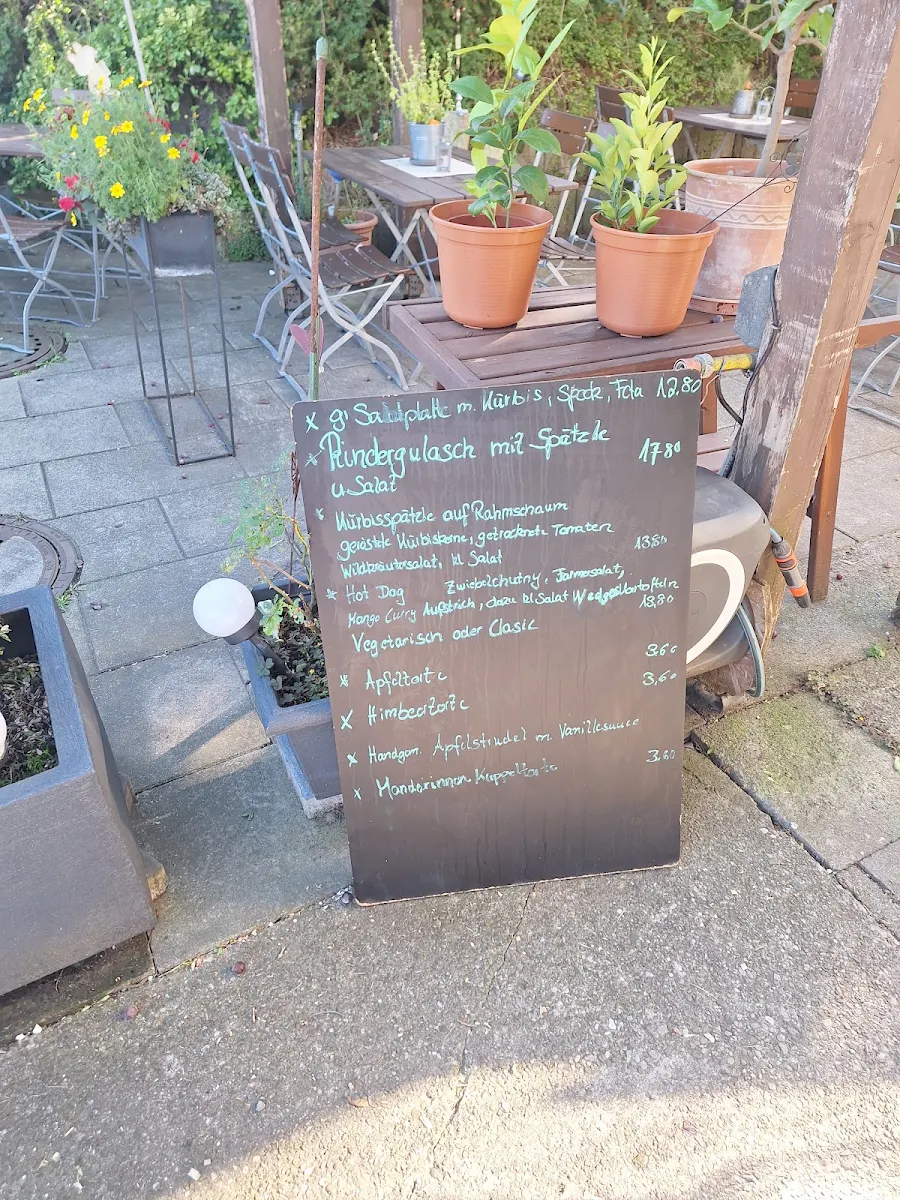 x gr Salatplatte m. Kürbis, Speck, Feta 12.80
x Rindergulasch mit Spätzle 17.80
u. Salat
x Kürbisspätzle auf Rahmschaum
geröstete Kürbiskerne, getrocknete Tomaten
Wildkräutersalat, kl Salat 13.80
x Hot Dog Zwiebelchutny,
Mango Curry Aufstrich, dazu kl Salat Wedgeskartoffeln
Vegetarisch oder Clasic 13,80
x Apfeltorte 3.60
x Himbeertorte 3.60
x Handgem. Apfelstrudel m. Vanillesauce
x Mandarinnen Kuppeltorte 3.60